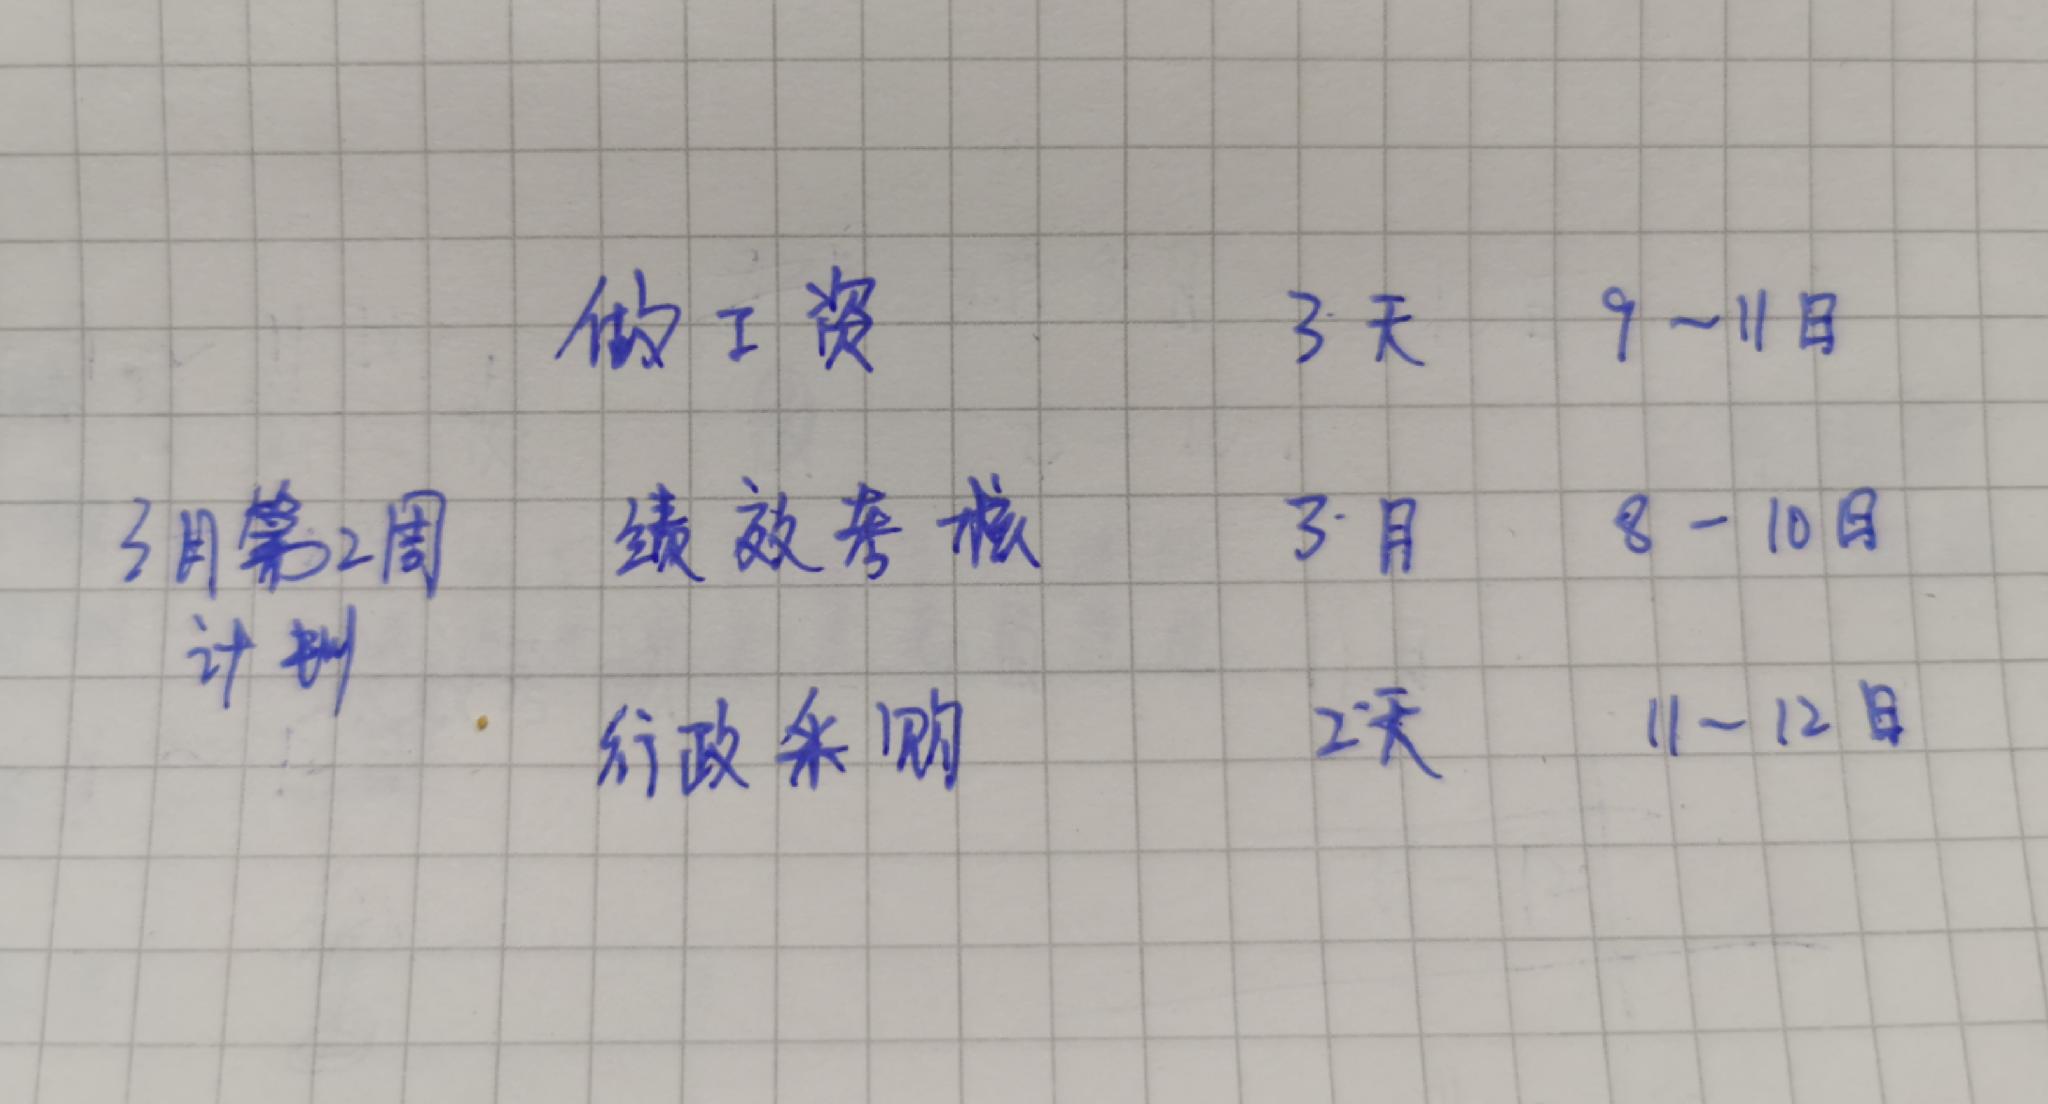 做工资 3天 9~11日
3月第2周 绩效考核 3月 8-10日
计划
行政采购 2天 11~12日